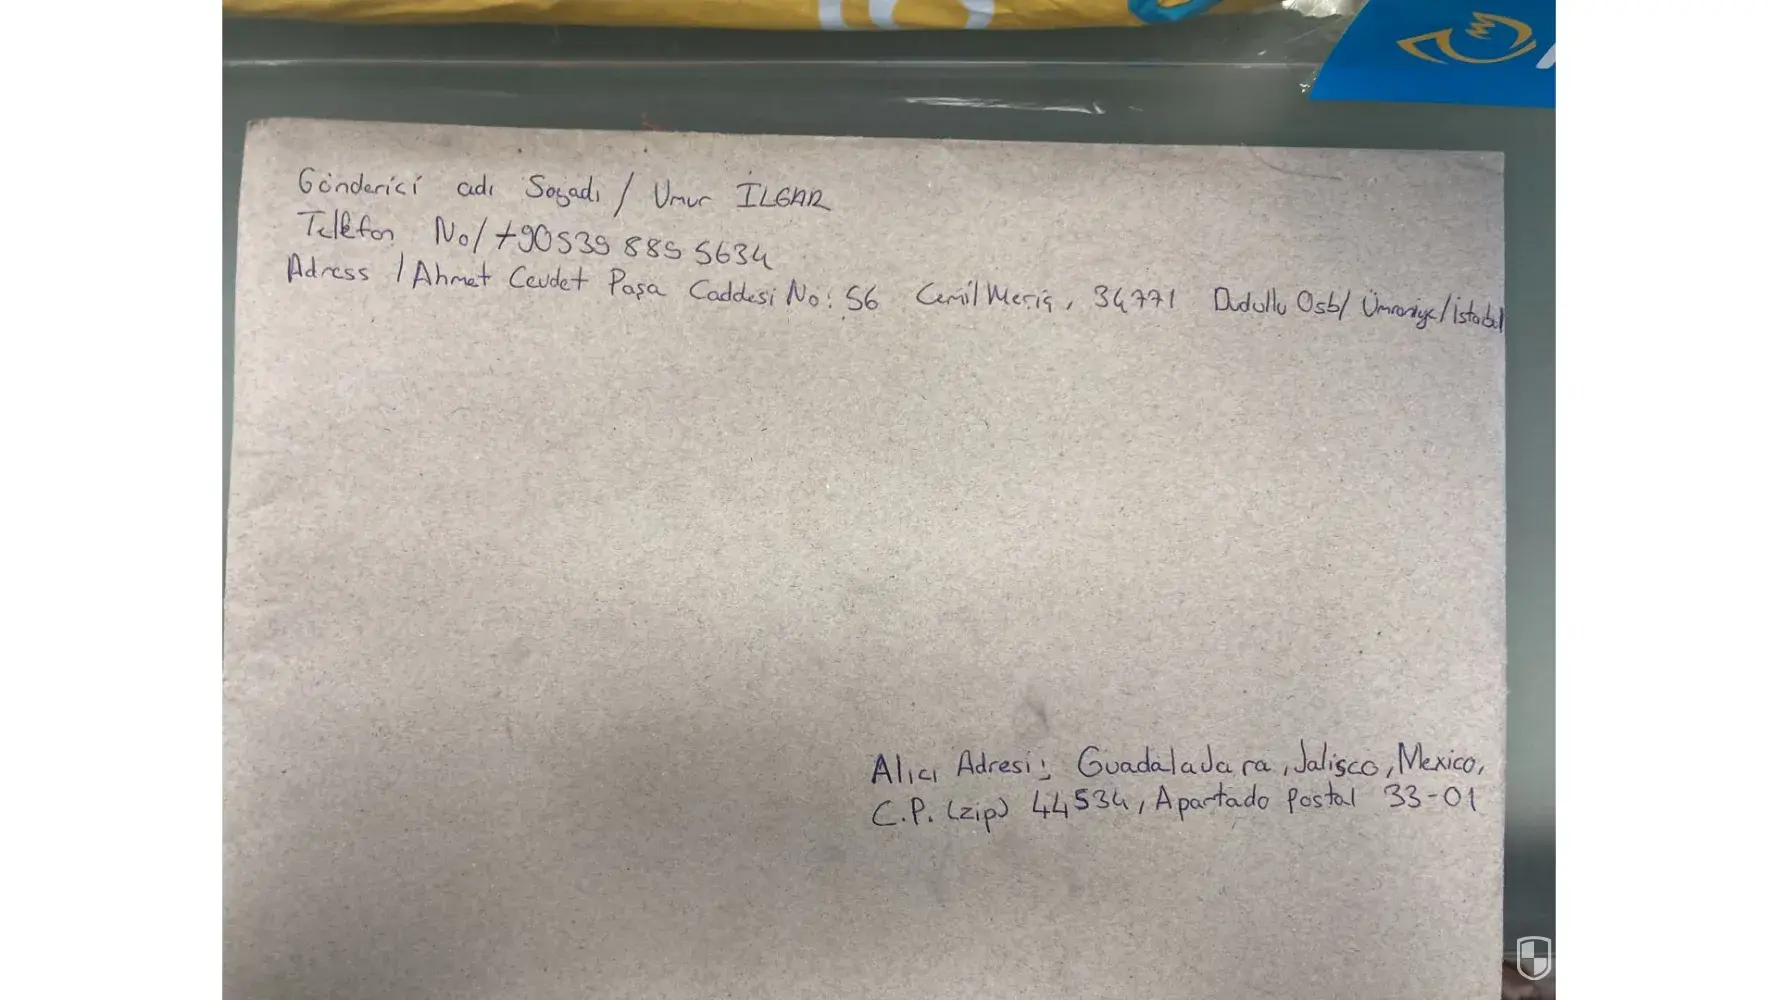 Gönderici adı Soyadı / Umur İLGAR
Telefon No/ +90539 885 5634
Adress / Ahmet Cevdet Paşa Caddesi No: 56 Cemil Meriç, 34771 Dudullu Osb/ Ümraniye/İstanbul
Alıcı Adresi: Guadalajara, Jalisco, Mexico,
C.P. (zip) 44534, Apartado Postal 33-01